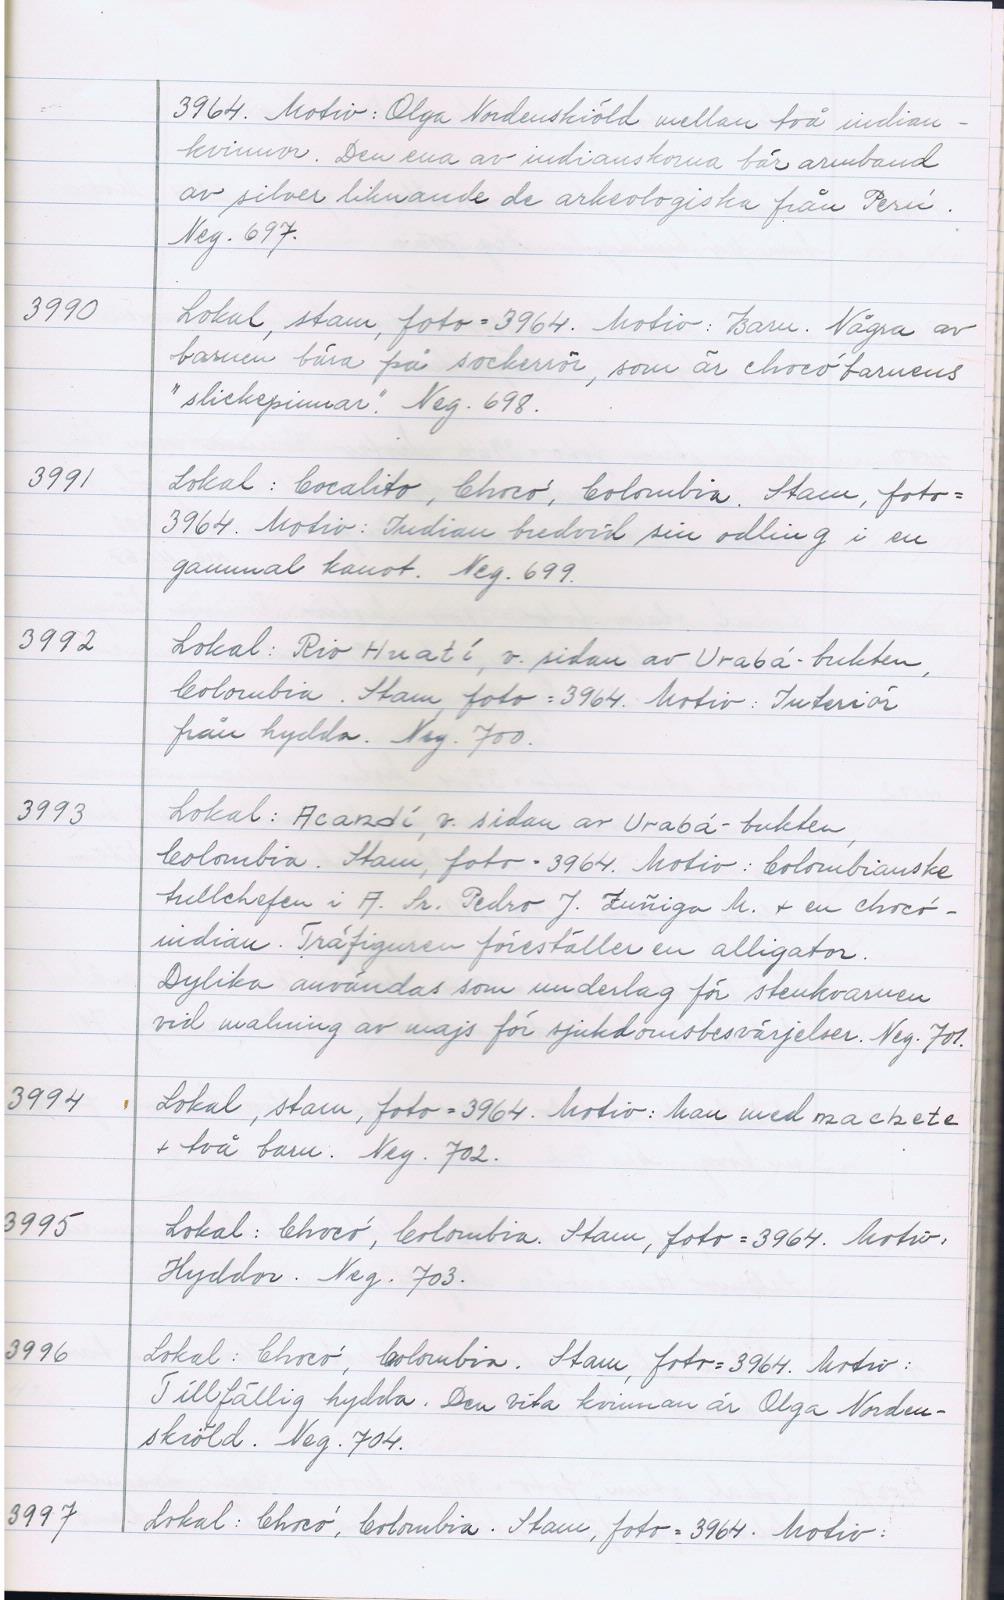 3964. Motiv: Olga Nordenskiöld mellan två indian-
kvinnor. Den ena av indianskorna bär armband
av silver liknande de arkeologiska från Perú.
Neg. 697.
3990 Lokal, stam, foto = 3964. Motiv: Barn. Några av
barnen bära på sockerrör, som är chocó barnens
"slickepinnar". Neg. 698.
3991 Lokal: Cocalito, Chocó, Colombia. Stam, foto =
3964. Motiv: Indian bredvid sin odling i en
gammal kanot. Neg. 699.
3992 Lokal: Rio Huatí, v. sidan av Urabá-bukten,
Colombia. Stam, foto = 3964. Motiv: Interiör
från hydda. Neg. 700.
3993 Lokal: Acandí, v. sidan av Urabá-bukten,
Colombia. Stam, foto = 3964. Motiv: Colombianske
tullchefen i A. Sr. Pedro J. Zuñiga M. + en chocó-
indian. Träfiguren föreställer en alligator.
Dylika användas som underlag för stenkvarnen
vid malning av majs för sjukdomsbesvärjelser. Neg. 701.
3994 Lokal, stam, foto = 3964. Motiv: Man med machete
+ två barn. Neg. 702.
3995 Lokal: Chocó, Colombia. Stam, foto = 3964. Motiv:
Hyddor. Neg. 703.
3996 Lokal: Chocó, Colombia. Stam, foto = 3964. Motiv:
Tillfällig hydda. Den vita kvinnan är Olga Norden-
skiöld. Neg. 704.
3997 Lokal: Chocó, Colombia. Stam, foto = 3964. Motiv: